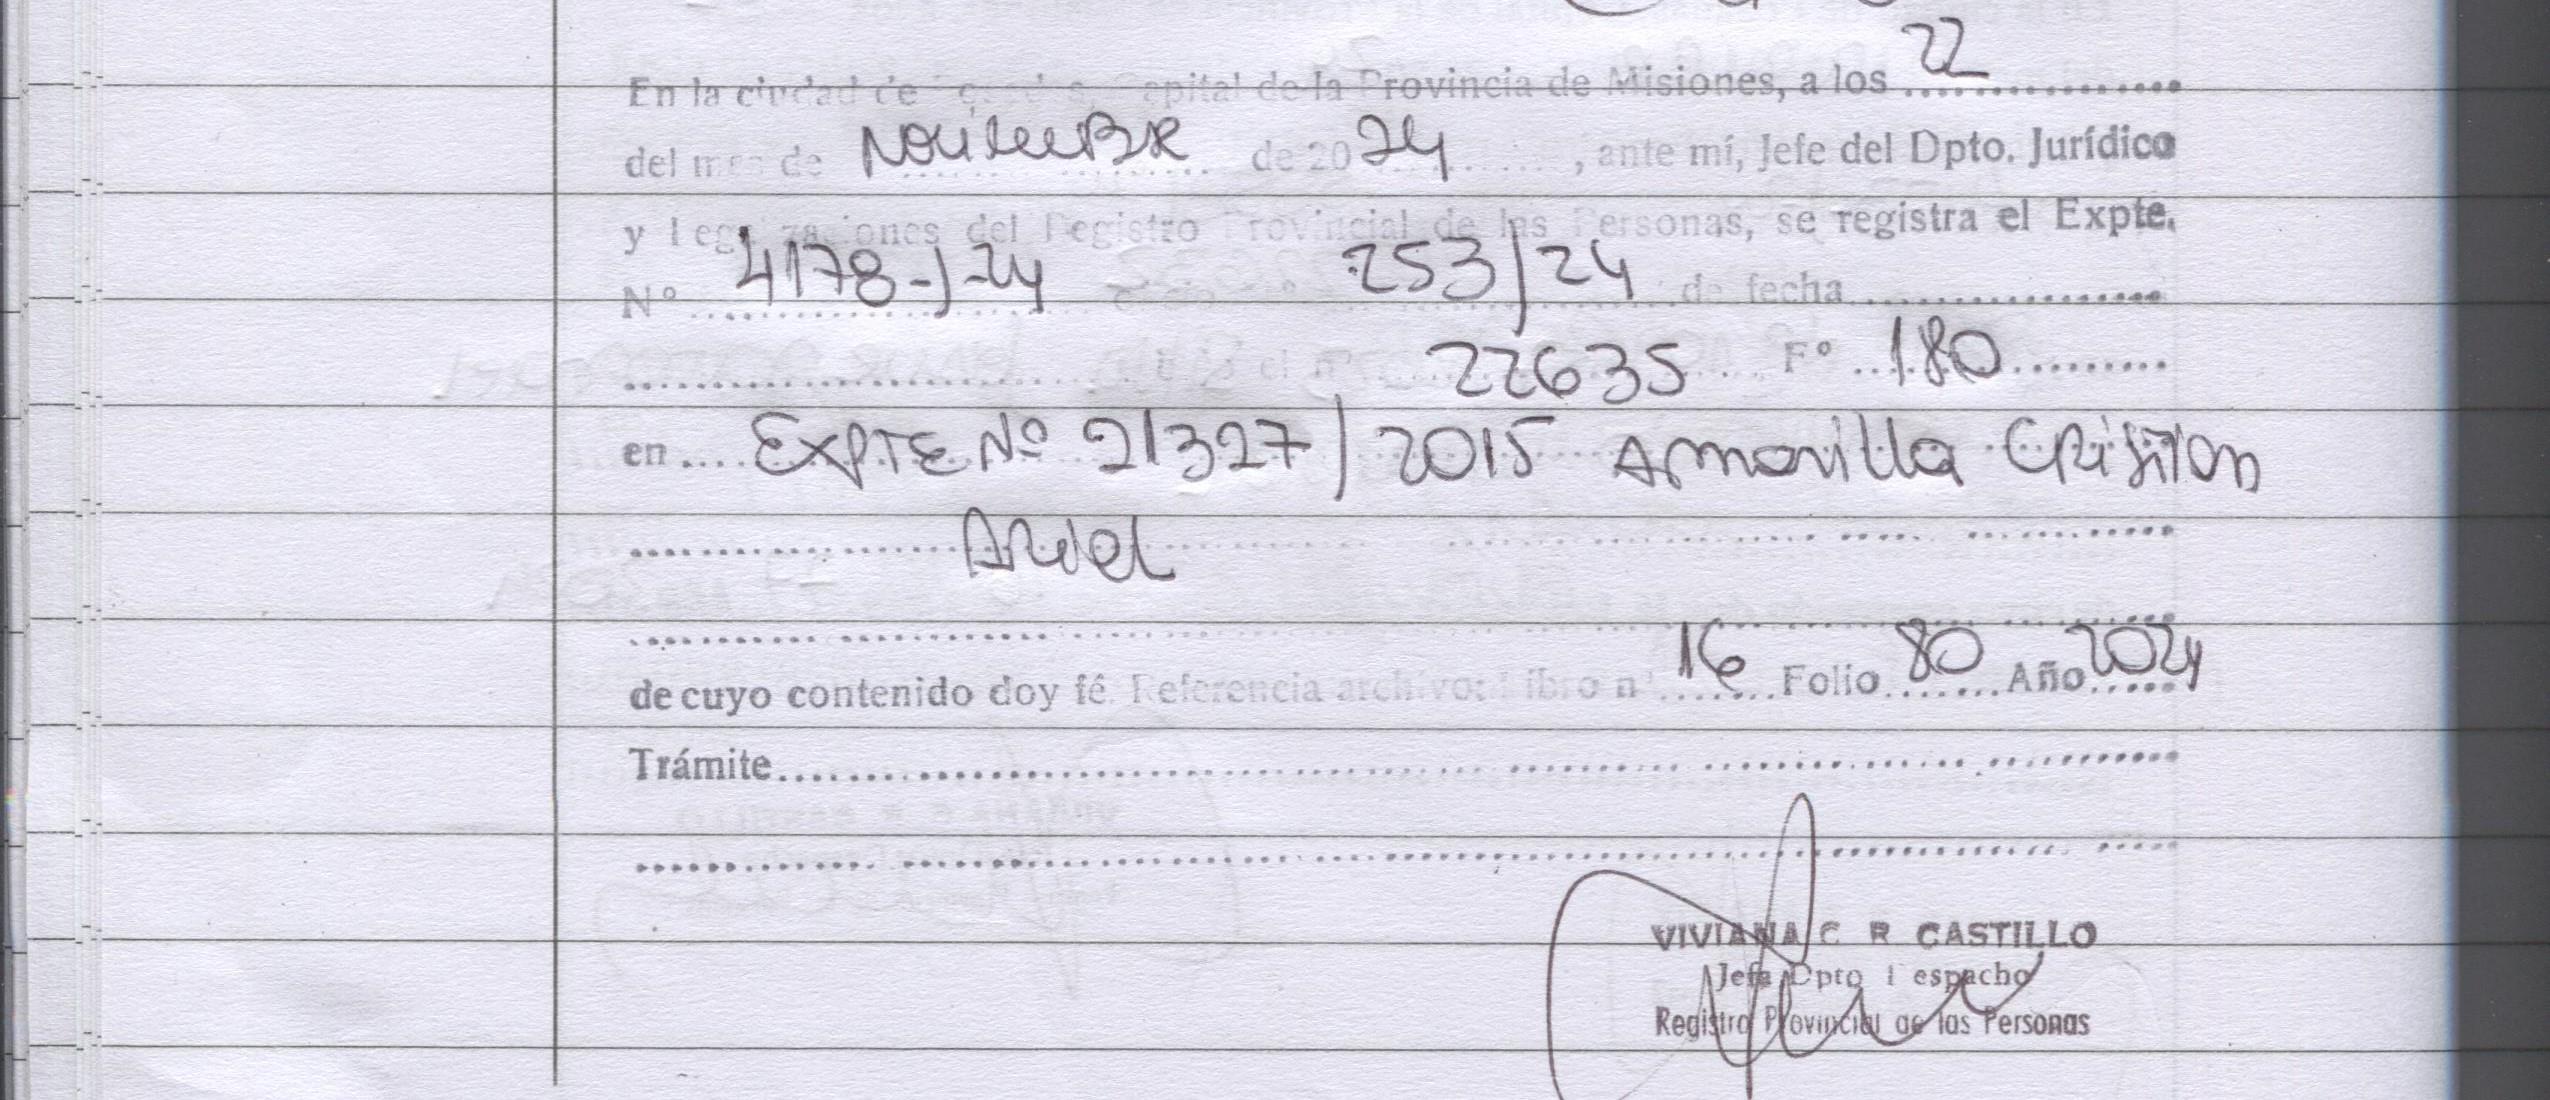 22
En la ciudad de Posadas, Capital de la Provincia de Misiones, a los
del mes de Noviembr de 20 24, ante mí, Jefe del Dpto. Jurídico
y Legalizaciones del Registro Provincial de las Personas, se registra el Expte.
Nº 4178-J-24 253/24 de fecha
22635 Fº 180
en EXPTE Nº 21327/2015 Amarilla Cristian
Ariel
de cuyo contenido doy fé. Referencia archivo: Libro nº 16 Folio 80 Año 2024
Trámite
VIVIANA C R CASTILLO
Jefa Dpto Despacho
Registro Provincial de las Personas